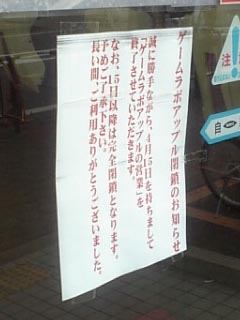 ゲームラボアップル閉鎖のお知らせ
誠に勝手ながら、4月15日を持ちまして
「ゲームラボアップルの営業」を
終了させていただきます。
なお、15日以降は完全閉鎖となります。
予めご了承下さい。
長い間、ご利用ありがとうございました。
自